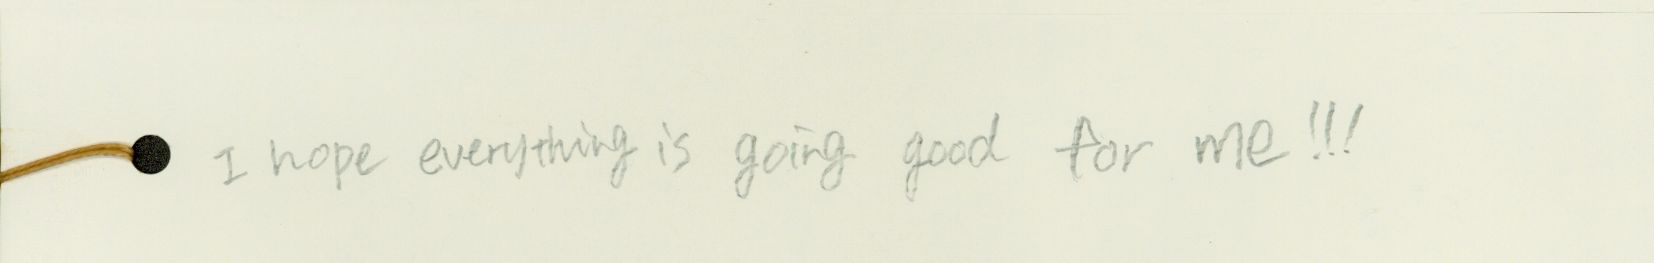 I hope everything is going good for me!!!